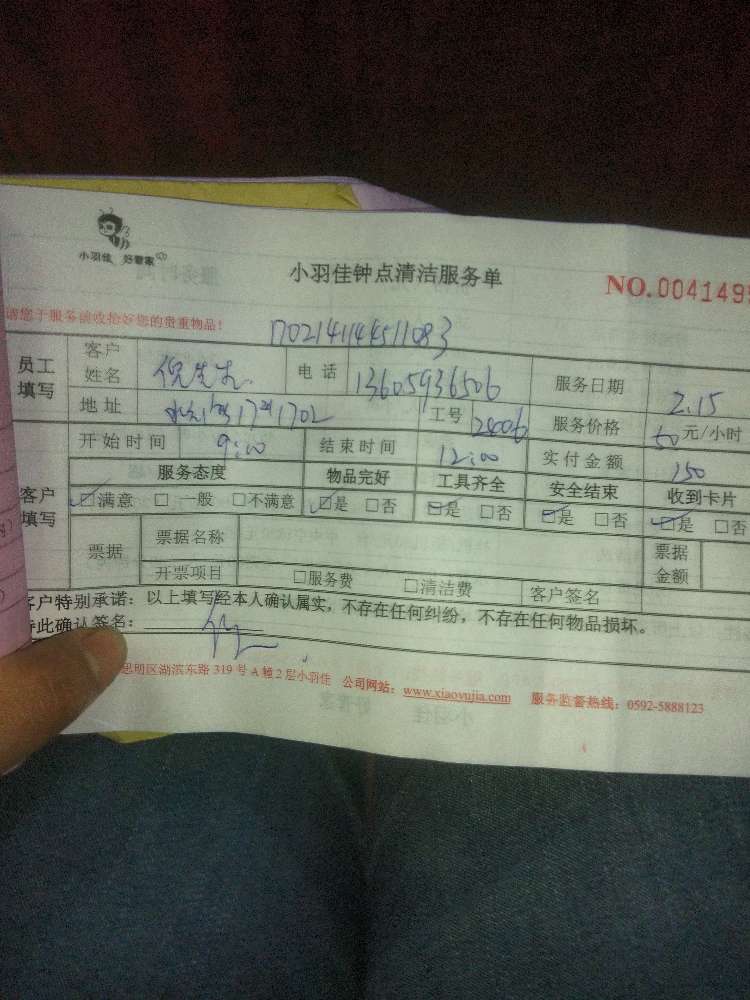 小羽佳 好管家
小羽佳钟点清洁服务单
NO.004149
请您于服务前收拾好您的贵重物品!
17021414451083
员工填写 客户姓名 倪先生 电话 13605936506 服务日期 2.15
地址 1702 工号 28006 服务价格 50元/小时
客户填写 开始时间 9:00 结束时间 12:00 实付金额 150
服务态度 物品完好 工具齐全 安全结束 收到卡片
☑满意 □一般 □不满意 ☑是 □否 ☑是 □否 ☑是 □否 ☑是 □否
票据 票据名称 票据金额
开票项目 □服务费 □清洁费 客户签名
客户特别承诺:以上填写经本人确认属实,不存在任何纠纷,不存在任何物品损坏。
此确认签名:
思明区湖滨东路 319 号 A 幢 2 层小羽佳 公司网站:www.xiaoyujia.com 服务监督热线:0592-5888123